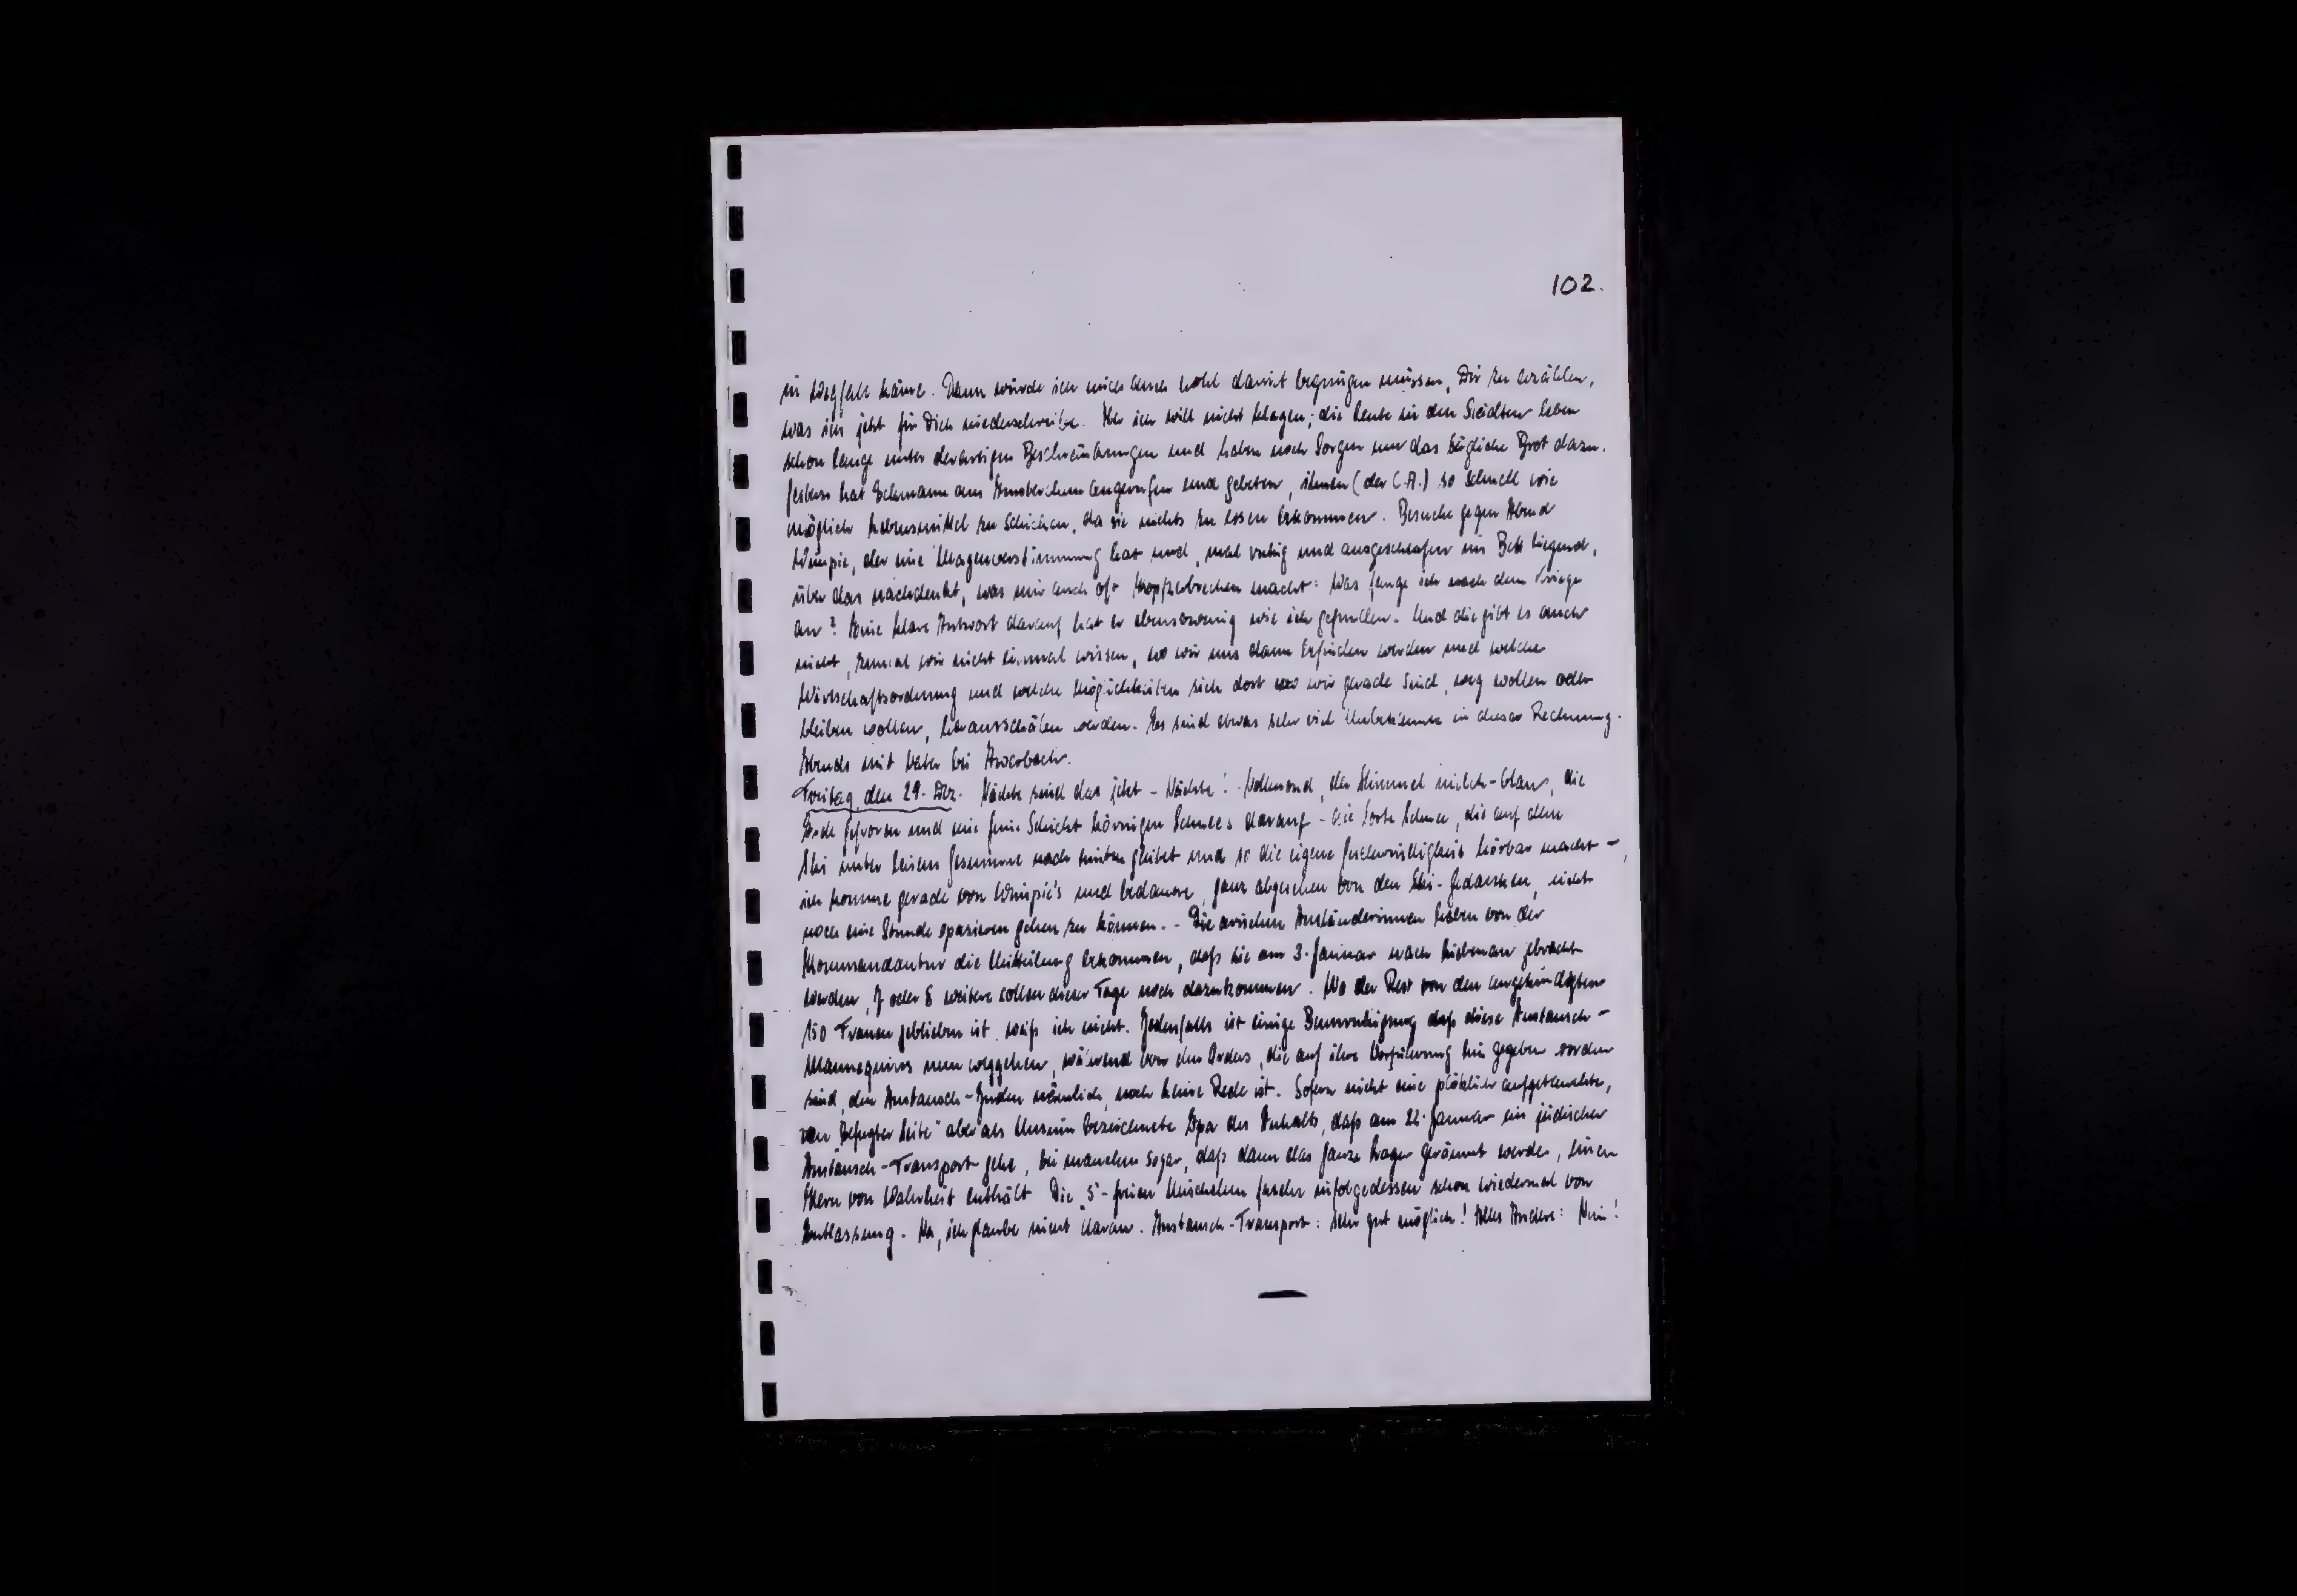 102.
in Wegfall käme. Dann würde ich mich auch wohl damit begnügen müssen, Dir zu erzählen,
was ich jetzt für Dich niederschreibe. Aber ich will nicht klagen; die Leute in den Städten leben
schon lange unter derartigen Beschränkungen und haben noch Sorgen um das tägliche Brot dazu.
Gestern hat Eckmann aus Amsterdam angerufen und gebeten, ihnen (der C.A.) so schnell wie
möglich Lebensmittel zu schicken, da sie nichts zu essen bekommen. Besuche gegen Abend
Wimpie, der eine Magenverstimmung hat und, mal ruhig und ausgeschlafen im Bett liegend,
über das nachdenkt, was mir auch oft Kopfzerbrechen macht: Was fange ich nach dem Kriege
an? Eine klare Antwort darauf hat er ebensowenig wie ich gefunden. Und die gibt es auch
nicht, zumal wir nicht einmal wissen, wo wir uns dann befinden werden und welche
Wirtschaftsordnung und welche Möglichkeiten sich dort wo wir gerade sind, weg wollen oder
bleiben wollen, herausschälen werden. Es sind etwas sehr viel Unbekannte in dieser Rechnung.
Abends mit Vater bei Auerbach.
Freitag, den 29. Dez. Nächte sind das jetzt - Nächte! Vollmond, der Himmel milch-blau, die
Erde gefroren und eine feine Schicht körnigen Schnees darauf - die Sorte Schnee, die auf dem
Ski unter leisem Gesumme nach hinten gleitet und so die eigene Geschwindigkeit hörbar macht -,
ich komme gerade von Wimpie's und bedaure, ganz abgesehen von den Ski-Gedanken, nicht
noch eine Stunde spazieren gehen zu können. - Die arischen Ausländerinnen haben von der
Kommandantur die Mitteilung bekommen, daß sie am 3. Januar nach Liebenau gebracht
werden, 7 oder 8 weitere sollen dieser Tage noch dazukommen. Wo der Rest von den angekündigten
150 Frauen geblieben ist, weiß ich nicht. Jedenfalls ist einige Beunruhigung, daß diese Austausch-
Mannequins nun weggehen, während von den Orders, die auf ihre Vorführung hin gegeben worden
sind, den Austausch-Juden nämlich, noch keine Rede ist. Sofern nicht eine plötzlich aufgetauchte,
von "befugter Seite" aber als Unsinn bezeichnete Ipa des Inhalts, daß am 22. Januar ein jüdischer
Austausch-Transport gehe, bei manchem sogar, daß dann das ganze Lager geräumt werde, einen
Kern von Wahrheit enthält. Die infolgedessen schon wiedermal von
Entlassung. Na, ich glaube nicht daran. Austausch-Transport: sehr gut möglich! Alles Andere: Nein!